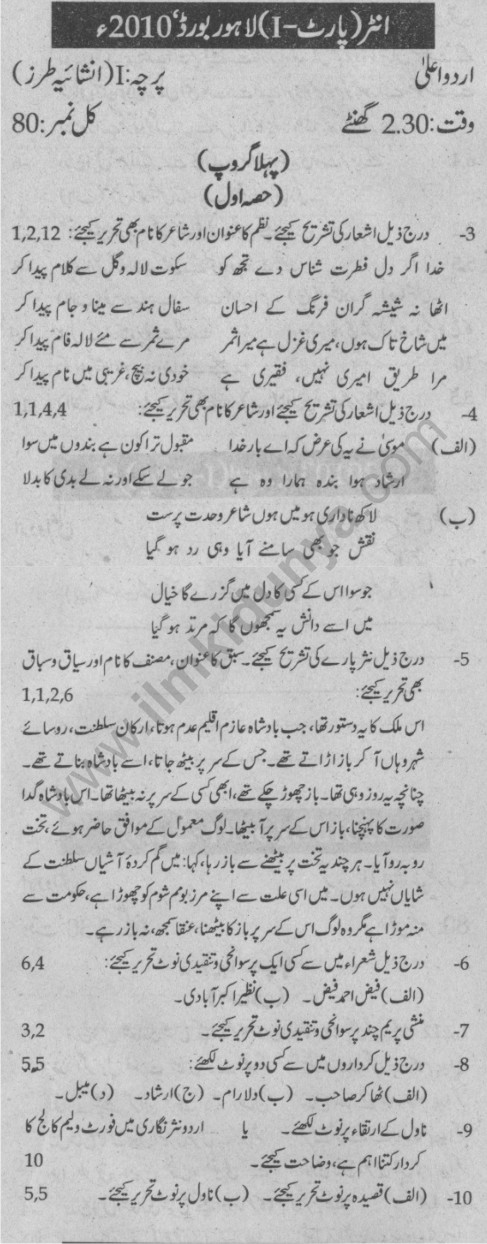 انٹر (پارٹ-I) لاہور بورڈ، 2010ء
اردو اعلیٰ پرچہ: I (انشائیہ طرز)
وقت: 2.30 گھنٹے کل نمبر: 80
(پہلا گروپ)
(حصہ اول)
3- درج ذیل اشعار کی تشریح کیجئے۔ نظم کا عنوان اور شاعر کا نام بھی تحریر کیجئے: 1,2,12
خدا اگر دل فطرت شناس دے تجھ کو سکوت لالہ و گل سے کلام پیدا کر
اٹھا نہ شیشہ گران فرنگ کے احسان سفال ہند سے مینا و جام پیدا کر
میں شاخ تاک ہوں، میری غزل ہے میرا ثمر مرے ثمر سے مئے لالہ فام پیدا کر
مرا طریق امیری نہیں، فقیری ہے خودی نہ بیچ، غریبی میں نام پیدا کر
4- درج ذیل اشعار کی تشریح کیجئے اور شاعر کا نام بھی تحریر کیجئے: 1,1,4,4
(الف) موسیٰ نے یہ کی عرض کہ اے بار خدا مقبول ترا کون ہے بندوں میں سوا
ارشاد ہوا بندہ ہمارا وہ ہے جو لے سکے اور نہ لے بدی کا بدلا
(ب) لاکھ ناداری ہو میں ہوں شاعر وحدت پرست
نقش جو بھی سامنے آیا وہی رد ہو گیا
جو سوا اس کے کسی کا دل میں گزرے گا خیال
میں اسے دانش یہ سمجھوں گا کہ مرتد ہو گیا
5- درج ذیل نثر پارے کی تشریح کیجئے۔ سبق کا عنوان، مصنف کا نام اور سیاق و سباق
بھی تحریر کیجئے: 1,1,2,6
اس ملک کا یہ دستور تھا، جب بادشاہ عازم اقلیم عدم ہوتا، ارکان سلطنت، روسائے
شہر وہاں آ کر باز اڑاتے تھے۔ جس کے سر پر بیٹھ جاتا، اسے بادشاہ بناتے تھے۔
چنانچہ یہ روز وہی تھا۔ باز چھوڑ چکے تھے، ابھی کسی کے سر پر نہ بیٹھا تھا۔ اس بادشاہ گدا
صورت کا پہنچنا، باز اس کے سر پر آ بیٹھا۔ لوگ معمول کے موافق حاضر ہوئے، تخت
روبہ رو آیا۔ ہر چند یہ تخت پر بیٹھنے سے باز رہا، کہا: میں گم کردۂ آشیاں سلطنت کے
شایاں نہیں ہوں۔ میں اسی علت سے اپنے مرز بوم شوم کو چھوڑا ہے، حکومت سے
منہ موڑا ہے مگر وہ لوگ اس کے سر پر باز کا بیٹھنا، عنقا سمجھ، نہ باز رہے۔
6- درج ذیل شعراء میں سے کسی ایک پر سوانحی و تنقیدی نوٹ تحریر کیجئے: 6,4
(الف) فیض احمد فیض۔ (ب) نظیر اکبر آبادی۔
7- منشی پریم چند پر سوانحی و تنقیدی نوٹ تحریر کیجئے۔ 3,2
8- درج ذیل کرداروں میں سے کسی دو پر نوٹ لکھئے: 5,5
(الف) ٹھاکر صاحب۔ (ب) دلارام۔ (ج) ارشاد۔ (د) میبل۔
9- ناول کے ارتقاء پر نوٹ لکھئے۔ یا اردو نثر نگاری میں فورٹ ولیم کالج کا
کردار کتنا اہم ہے، وضاحت کیجئے۔ 10
10- (الف) قصیدہ پر نوٹ تحریر کیجئے۔ (ب) ناول پر نوٹ تحریر کیجئے۔ 5,5
www.ilmkidunya.com